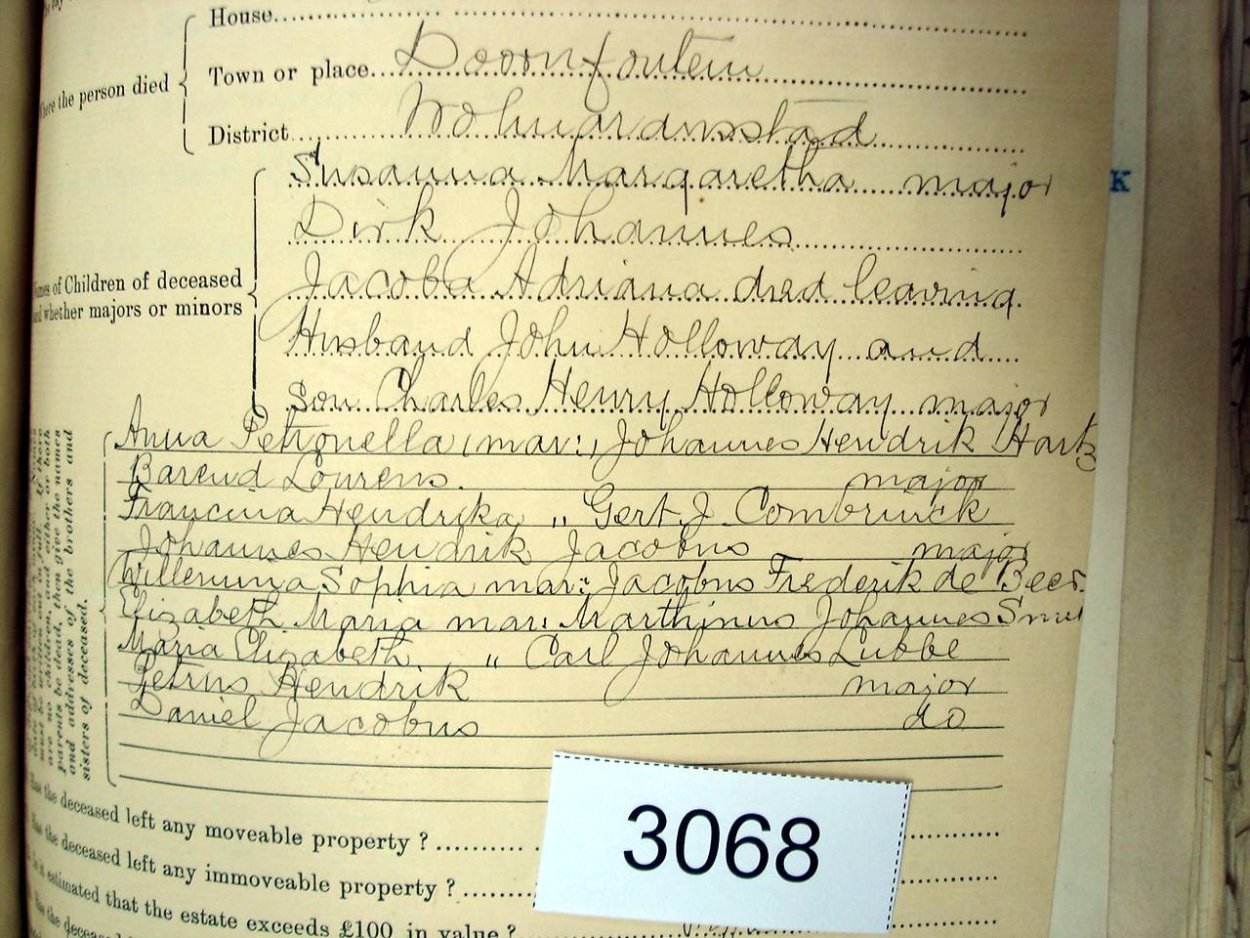 House
Where the person died
Town or place Doornfontein
District Wolmaransstad
Susanna Margaretha major
Dirk Johannes
Jacoba Adriana died leaving
Names of Children of deceased
and whether majors or minors
Husband John Holloway and
Son Charles Henry Holloway major
Anna Petronella (mar:) Johannes Hendrik Hartz
Barend Lourens. major
Francina Hendrika " Gert J Combrinck
Johannes Hendrik Jacobus major
Willemina Sophia mar: Jacobus Frederik de Beer
Elizabeth Maria mar: Marthinus Johannes Smit
Maria Elizabeth " Carl Johannes Lubbe
Petrus Hendrik major
Daniel Jacobus do
are no children, and either or both
parents be dead, then give the names
and addresses of the brothers and
sisters of deceased.
Has the deceased left any moveable property ?
Has the deceased left any immoveable property ?
Is it estimated that the estate exceeds £100 in value ?
Has the deceased
3068
K